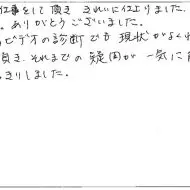 仕事をして頂き きれいに仕上りました。
。ありがとうございました。
ビデオの診断でか 現状がよく
頂き、それまでの 疑問が 一気に
きりしました。